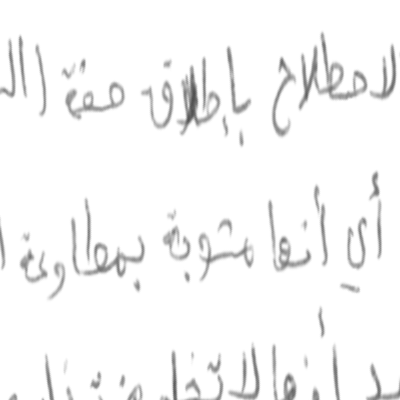 لاصطلاح بإطلاق صفة (الـ
أي أنها مشوبة بمطاوعة
أنها لا تخلو